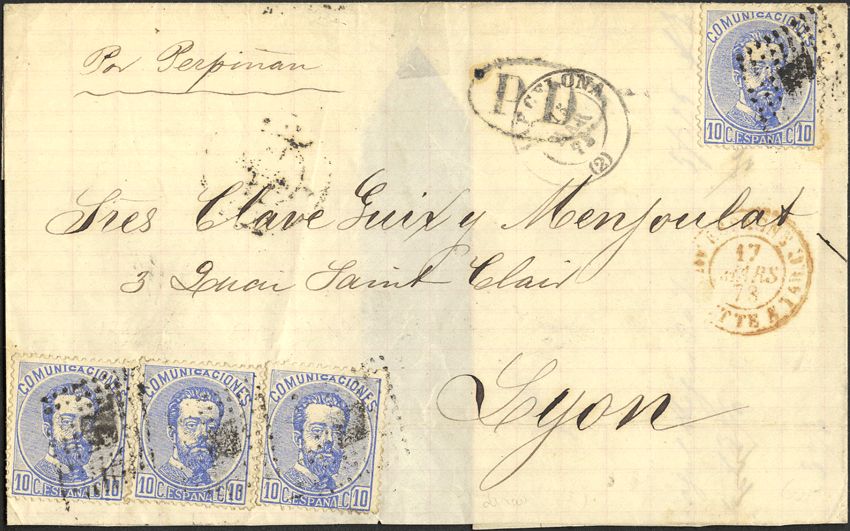 Por Perpiñan
COMUNICACIONES
10 C. ESPAÑA. C 10
P.D.
BARCELONA
73
(2)
Sres Clave Guix y Menjoulat
3 Quai Saint Clair
17
MARS
73
CETTE A TAR
Lyon
COMUNICACIONES
10 C. ESPAÑA. C 10
COMUNICACIONES
10 C. ESPAÑA. C 10
COMUNICACIONES
10 C. ESPAÑA. C 10